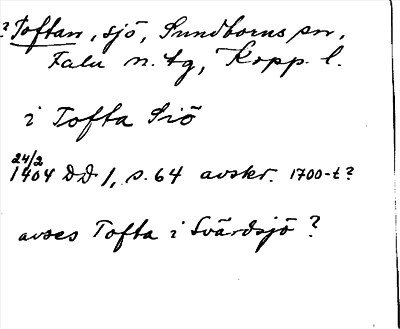 ? Toftan, sjö, Sundborns sn,
Falu n. tg, Kopp. l.
i Tofta Siö
24/2
1404 DD 1, s. 64 avskr. 1700-t?
avses Tofta i Svärdsjö ?